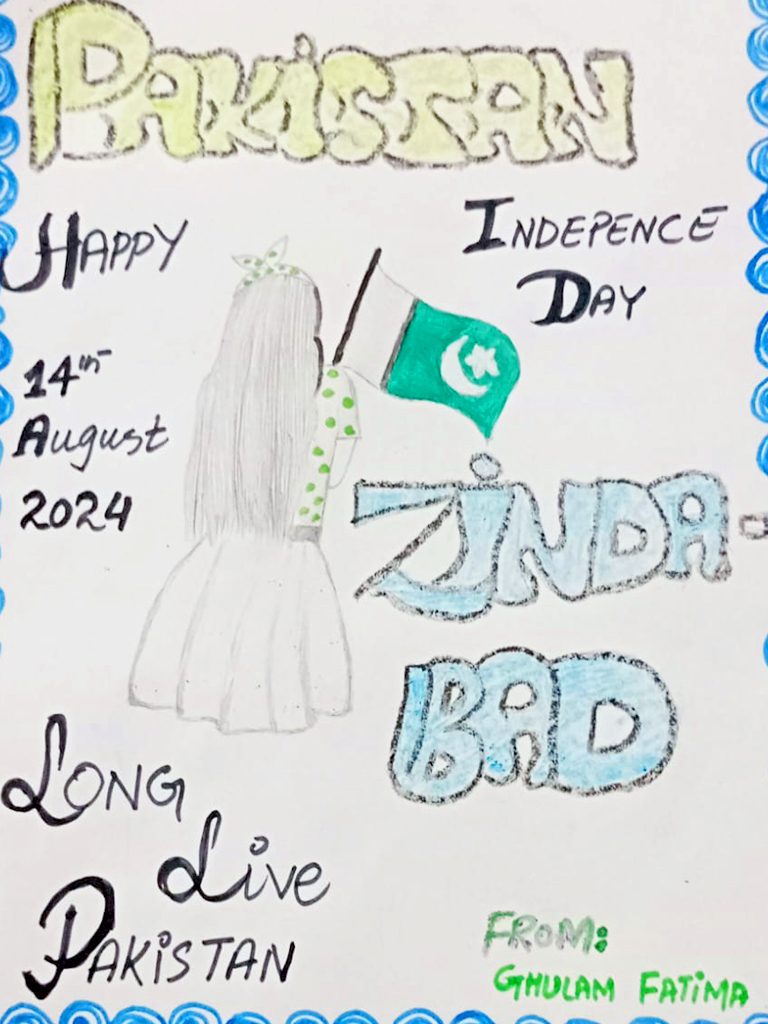 PAKiSTAN
HAPPY
INDEPENCE
DAY
14th
August
2024
ZiNDA-
BAD
LONG
Live
PAKiSTAN
FROM:
GHULAM FATiMA